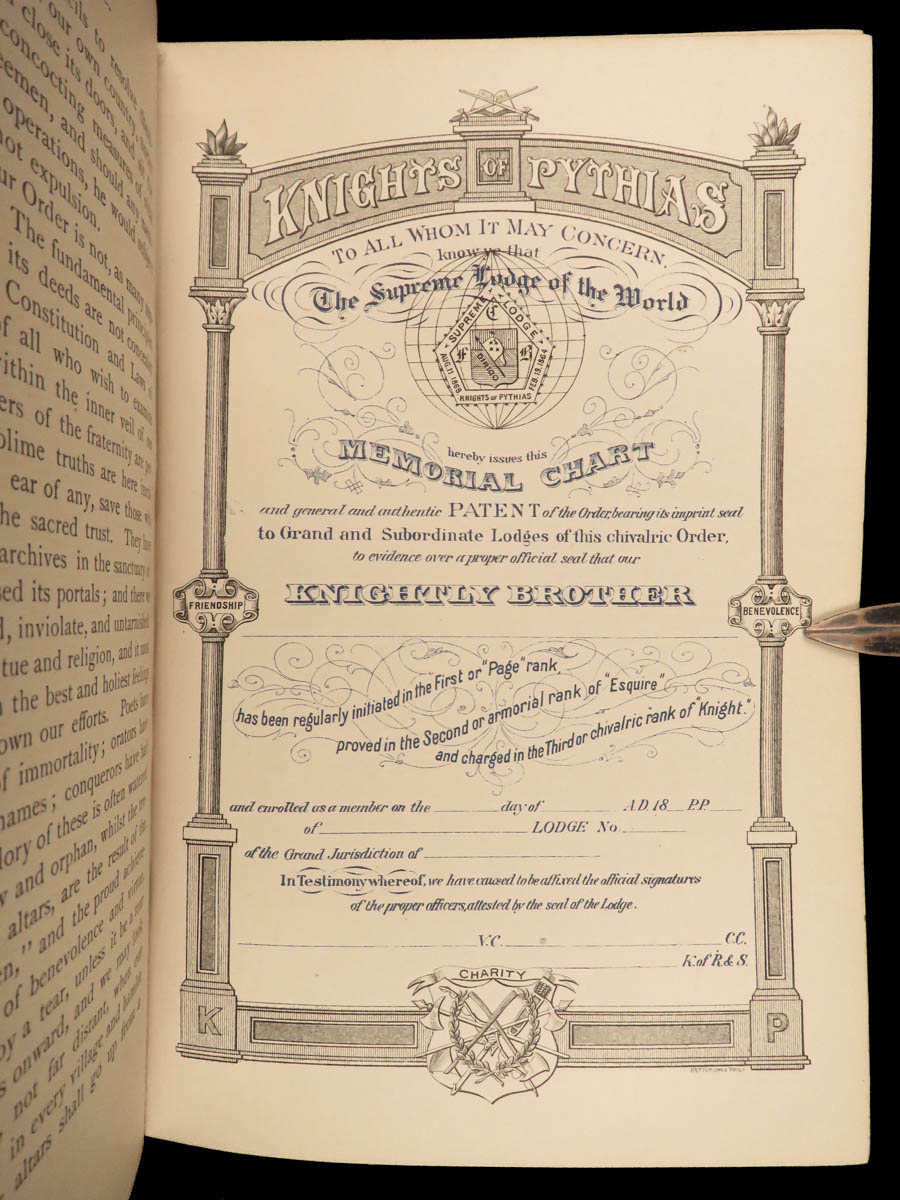 to resolve
our own country,
close its doors, and
concocting measures of
and should any
operations, he would
not expulsion.
Order is not, as many
The fundamental principles
its deeds are not concealed
Constitution and Laws of
of all who wish to examine
within the inner veil of our
of the fraternity are
truths are here
ear of any, save those
the sacred trust. They have
archives in the sanctuary of
its portals; and there we
inviolate, and untarnished
and religion, and it must
the best and holiest feelings
own our efforts. Poets have
of immortality; orators have
names; conquerors have had
of these is often watered
and orphan, whilst the
altars, are the result of the
" and the proud achieve
of benevolence and
by a tear, unless it be a tear
onward, and we may look
not far distant, when
in every village and hamlet
altars shall go up from a
KNIGHTS OF PYTHIAS
TO ALL WHOM IT MAY CONCERN,
know ye that
The Supreme Lodge of the World
SUPREME LODGE
C
F B
DIRIGO
AUG. 11. 1868 FEB. 19. 1864
KNIGHTS OF PYTHIAS
hereby issues this
MEMORIAL CHART
and general and authentic PATENT of the Order, bearing its imprint seal
to Grand and Subordinate Lodges of this chivalric Order,
to evidence over a proper official seal that our
KNIGHTLY BROTHER
FRIENDSHIP
BENEVOLENCE
has been regularly initiated in the First or "Page" rank,
proved in the Second or armorial rank of "Esquire"
and charged in the Third or chivalric rank of "Knight."
and enrolled as a member on the day of A.D. 18 P.P.
of LODGE No.
of the Grand Jurisdiction of
In Testimony whereof, we have caused to be affixed the official signatures
of the proper officers, attested by the seal of the Lodge.
V.C. C.C.
K. of R. & S.
CHARITY
K P